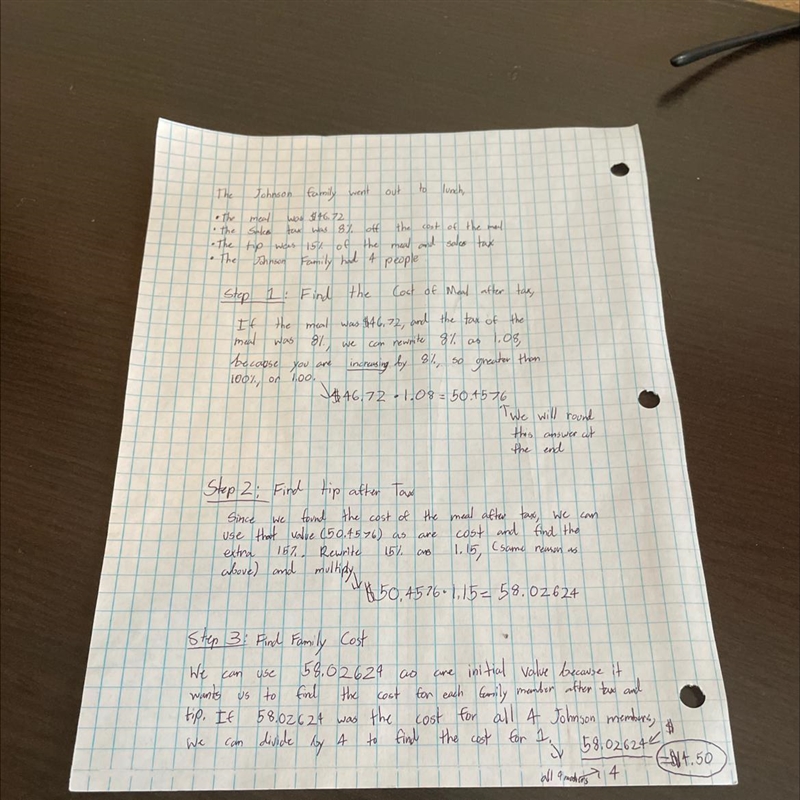 The Johnson family went out to lunch,
• The meal was $46.72
• the sales tax was 8% off the cost of the meal
• The tip was 15% of the meal and sales tax
• The Johnson Family had 4 people
Step 1: Find the Cost of Meal after tax,
If the meal was $46.72, and the tax of the
meal was 8%, we can rewrite 8% as 1.08,
because you are increasing by 8%, so greater than
100%, or 1.00.
$46.72 • 1.08 = 50.4576
We will round
this answer at
the end
Step 2: Find tip after Tax
Since we found the cost of the meal after tax, we can
use that value (50.4576) as are cost and find the
extra 15%. Rewrite 15% as 1.15, (same reason as
above) and multiply
$50.4576 • 1.15 = 58.02624
Step 3: Find Family Cost
We can use 58.02624 as are initial value because it
wants us to find the cost for each family member after tax and
tip. If 58.02624 was the cost for all 4 Johnson members,
we can divide by 4 to find the cost for 1.
$
58.02624
all 4 members 4
= $14.50